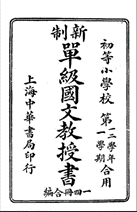 初等小學校 第一二學年 第一學期 合用
新制
單級國文教授書
一四冊合編
上海中華書局印行